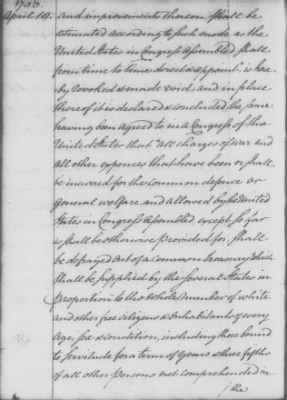 1783.
April 19. and improvements thereon, shall be
estimated according to such mode as the
United States in Congress Assembled shall
from time to time direct & appoint" is here
by revoked & made void and in place
thereof it is declared & concluded, the same
having been agreed to in a Congress of the
United States that "all charges of war and
all other expences that have been or shall
be incurred for the common defence or
general welfare and allowed by the United
States in Congress Assembled except so far
as shall be otherwise provided for shall
be defrayed out of a common treasury which
shall be supplied by the several States in
proportion to the whole number of white
and other free citizens & Inhabitants of every
age sex & condition, including those bound
to servitude for a term of years & three fifths
of all other persons not comprehended in
/ the